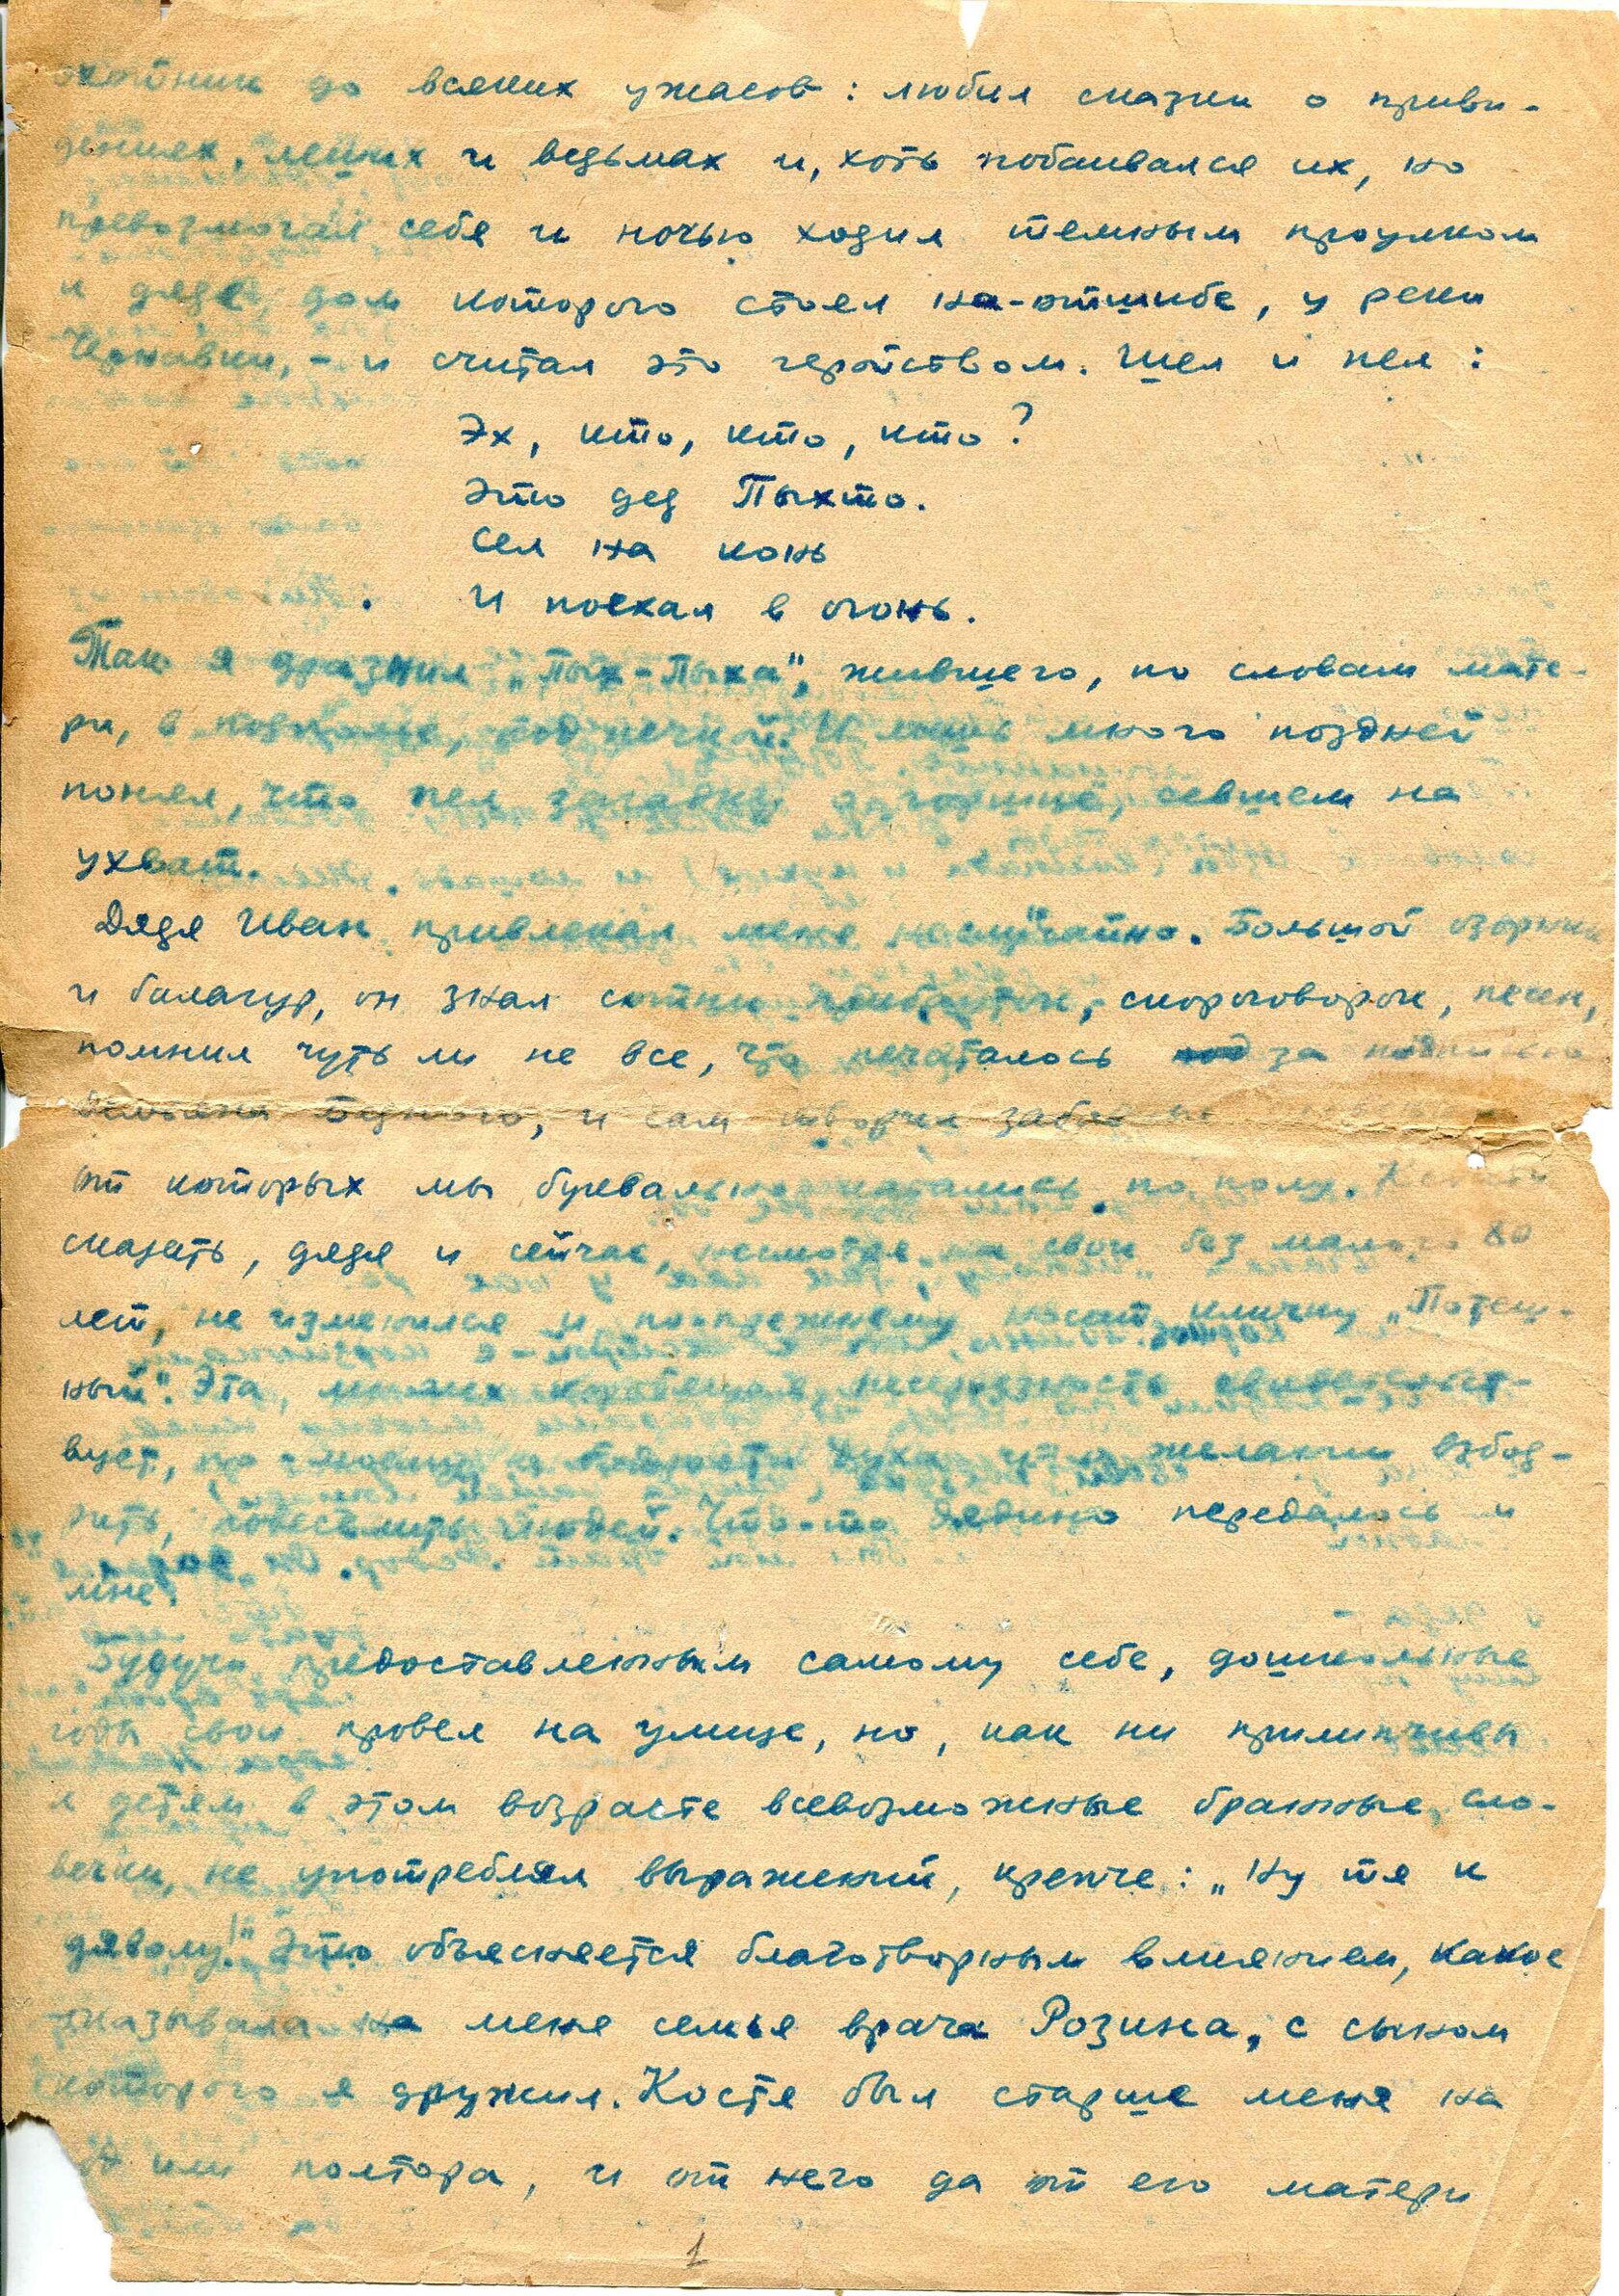 охотник до всяких ужасов: любил сказки о приви-
дениях, леших и ведьмах и, хоть побаивался их, но
превозмогал себя и ночью ходил темным проулком
к дяде, дом которого стоял на-отшибе, у реки
– и считал это геройством. Шел и пел:
Эх, кто, кто, кто?
Это дед Пыхто.
Сел на конь
И поехал в огонь.
Так я дразнил „Пых-Пыха", жившего, по словам мате-
ри, в подполье, под печкой. И лишь много поздней
понял, что пел загадку о горшке, севшем на
ухват.
Дядя Иван привлекал меня не случайно. Большой озорник
и балагур, он знал сотни прибауток, скороговорок, песен,
помнил чуть ли не все, что печаталось за подписью
Демьяна Бедного, и сам творил
от которых мы буквально катались по полу. Кстати
сказать, дядя и сейчас, несмотря на свои без малого 80
лет, не изменился и по-прежнему носит кличку „Потеш-
ный". Эта, многих несерьезность свидетельст-
вует, по-моему, о бодрости духа, желании взбод-
рить, повеселить людей. Что-то дядино передалось и
мне.
Будучи предоставленным самому себе, дошкольные
годы свои провел на улице, но, как ни прилипчивы
к детям в этом возрасте всевозможные бранные сло-
вечки, не употреблял выражений, крепче: „Ну тя к
дяволу!" Это объясняется благотворным влиянием, какое
оказывала на меня семья врача Розина, с сыном
которого я дружил. Костя был старше меня на
или полтора, и от него да от его матери
1